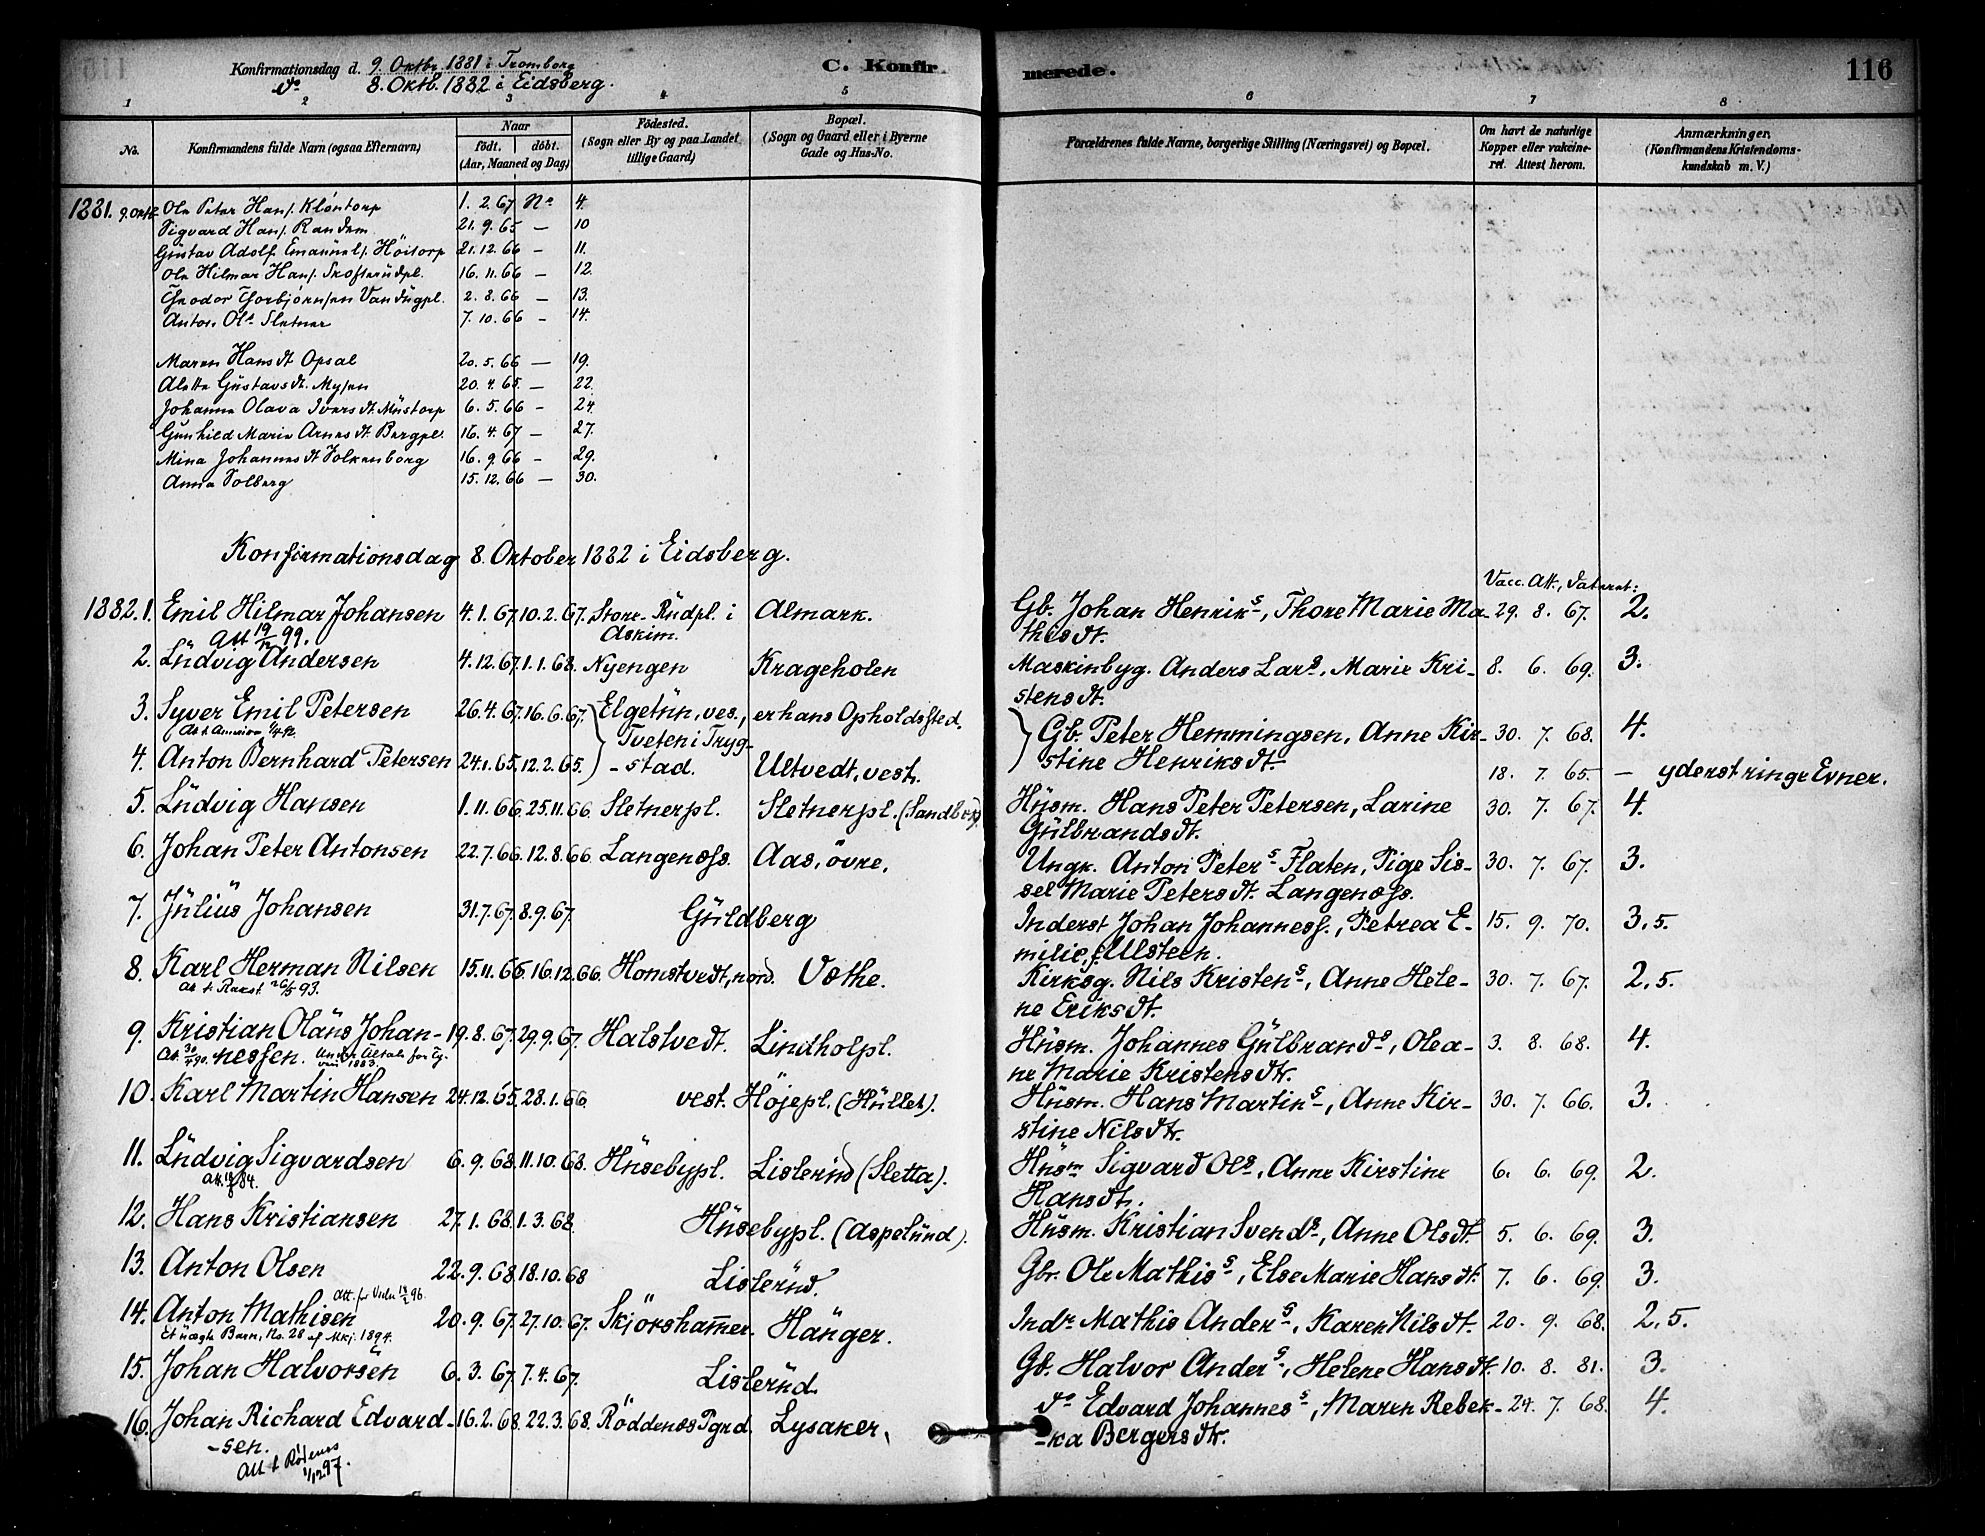 Konfirmationsdag d. 9. Oktbr. 1881 i Tromborg
do 8. Oktb. 1882 i Eidsberg.
C. Konfirmerede.
116
1 2 3 4 5 6 7 8
No.
Konfirmandens fulde Navn (ogsaa Efternavn)
Naar
født. døbt.
(Aar, Maaned og Dag)
Födested.
(Sogn eller By og paa Landet
tillige Gaard)
Bopæl.
(Sogn og Gaard eller i Byerne
Gade og Hus-No.
Forældrenes fulde Navne, borgerlige Stilling (Næringsvei) og Bopæl.
Om havt de naturlige
Kopper eller vakcine-
ret. Attest herom.
Anmærkninger.
(Konfirmandens Kristendoms-
kundskab m. V.)
1881. 9. Oktb. Ole Peter Hans. Kløntorp 1. 2. 67 No 4.
Sigvard Hans. Randem 21. 9. 65 — 10
Gustav Adolf Emanuels. Höitorp 21. 12. 66 — 11.
Ole Hilmar Hans. Skofterudpl. 16. 11. 66 — 12.
Theodor Thorbjørnsen Vandugpl. 2. 8. 66 — 13.
Anton Ols Sletner 7. 10. 66 — 14.
Maren Hansdt Opsal 20. 5. 66 — 19.
Alette Gustavsdt. Mysen 20. 4. 65 — 22.
Johanne Olava Iversdt. Mustorp 6. 5. 66 — 24.
Gunhild Marie Arnesdt Bergpl. 16. 4. 67 — 27.
Mina Johannesdt Solkenborg 16. 9. 66 — 29.
Anna Solberg 15. 12. 66 — 30.
Konfirmationsdag 8. Oktober 1882 i Eidsberg.
Vacc. Att., dateret:
1882. 1. Emil Hilmar Johansen 4. 1. 67. 10. 2. 67. Store-Rudpl. i Almark. Gb. Johan Henriks, Thore Marie Ma- 29. 8. 67. 2.
Att 19/12 99. Askim. thisdt.
2. Ludvig Andersen 4. 12. 67. 1. 1. 68. Nyengen Krageholen Maskinbyg. Anders Lars, Marie Kri- 8. 6. 69. 3.
stensdt.
3. Syver Emil Petersen 26. 4. 67. 16. 6. 67. Elgetun, ves., er hans Opholdssted. Gb. Peter Hemmingsen, Anne Kir- 30. 7. 68. 4.
Tveten i Tryg-
4. Anton Bernhard Petersen 24. 1. 65. 12. 2. 65. -stad. Ultvedt, vest. stine Henriksdt. 18. 7. 65. — yderst ringe Evner.
5. Ludvig Hansen 1. 11. 66. 25. 11. 66. Sletnerpl. Sletnerpl. Husm. Hans Peter Petersen, Larine 30. 7. 67. 4.
Gulbrandsdt.
6. Johan Peter Antonsen 22. 7. 66. 12. 8. 66. Langenæss. Aas, övre. Ungk. Anton Peters Flaten, Pige Sis- 30. 7. 67. 3.
sel Marie Petersdt. Langenæss.
7. Julius Johansen 31. 7. 67. 8. 9. 67. Guldberg Inderst Johan Johanness., Petrea E- 15. 9. 70. 3. 5.
milie, f. Ulsteen.
8. Karl Herman Nilsen 15. 11. 66. 16. 12. 66. Homstvedt, nord. Vethe. Kirksg. Nils Kristens, Anne Hele- 30. 7. 67. 2. 5.
Att. t. Rakst. 26/5 93. ne Eriksdt.
9. Kristian Olaus Johan- 19. 8. 67. 29. 9. 67. Halstvedt. Lindholpl. Husm. Johannes Gulbrands, Olea- 3. 8. 68. 4.
nessen. ne Marie Kristensdtr.
10. Karl Martin Hansen 24. 12. 65. 28. 1. 66. vest. Højepl. (Hullet). Husm. Hans Martins, Anne Kir- 30. 7. 66. 3.
stine Nilsdtr.
11. Ludvig Sigvardsen 6. 9. 68. 11. 10. 68. Husebypl. Lislerud (Sletta). Husm Sigvard Ols, Anne Kirstine 6. 6. 69. 2.
Hansdt.
12. Hans Kristiansen 27. 1. 68. 1. 3. 68. Husebypl. (Aspelund). Husm. Kristian Svends, Anne Olsdt. 5. 6. 69. 3.
13. Anton Olsen 22. 9. 68. 18. 10. 68 Lislerud. Gbr. Ole Mathis s, Else Marie Hansdt. 7. 6. 69. 3.
14. Anton Mathisen 20. 9. 67. 27. 10. 67. Skjörshammer. Hanger. Indr Mathis Anders, Karen Nilsdt. 20. 9. 68. 2. 5.
Et uægte Barn, No. 28 af Mkj. 1894.
15. Johan Halvorsen 6. 3. 67. 7. 4. 67. Lislerud. Gb. Halvor Anders, Helene Hansdt. 10. 8. 81. 3.
16. Johan Richard Edvard- 16. 2. 68. 22. 3. 68. Röddenæs Pgrd. Lysaker. do Edvard Johanness, Maren Rebek- 24. 7. 68. 4.
-sen. -ka Bergersdtr.
Att t Rødenes
1/12 97.